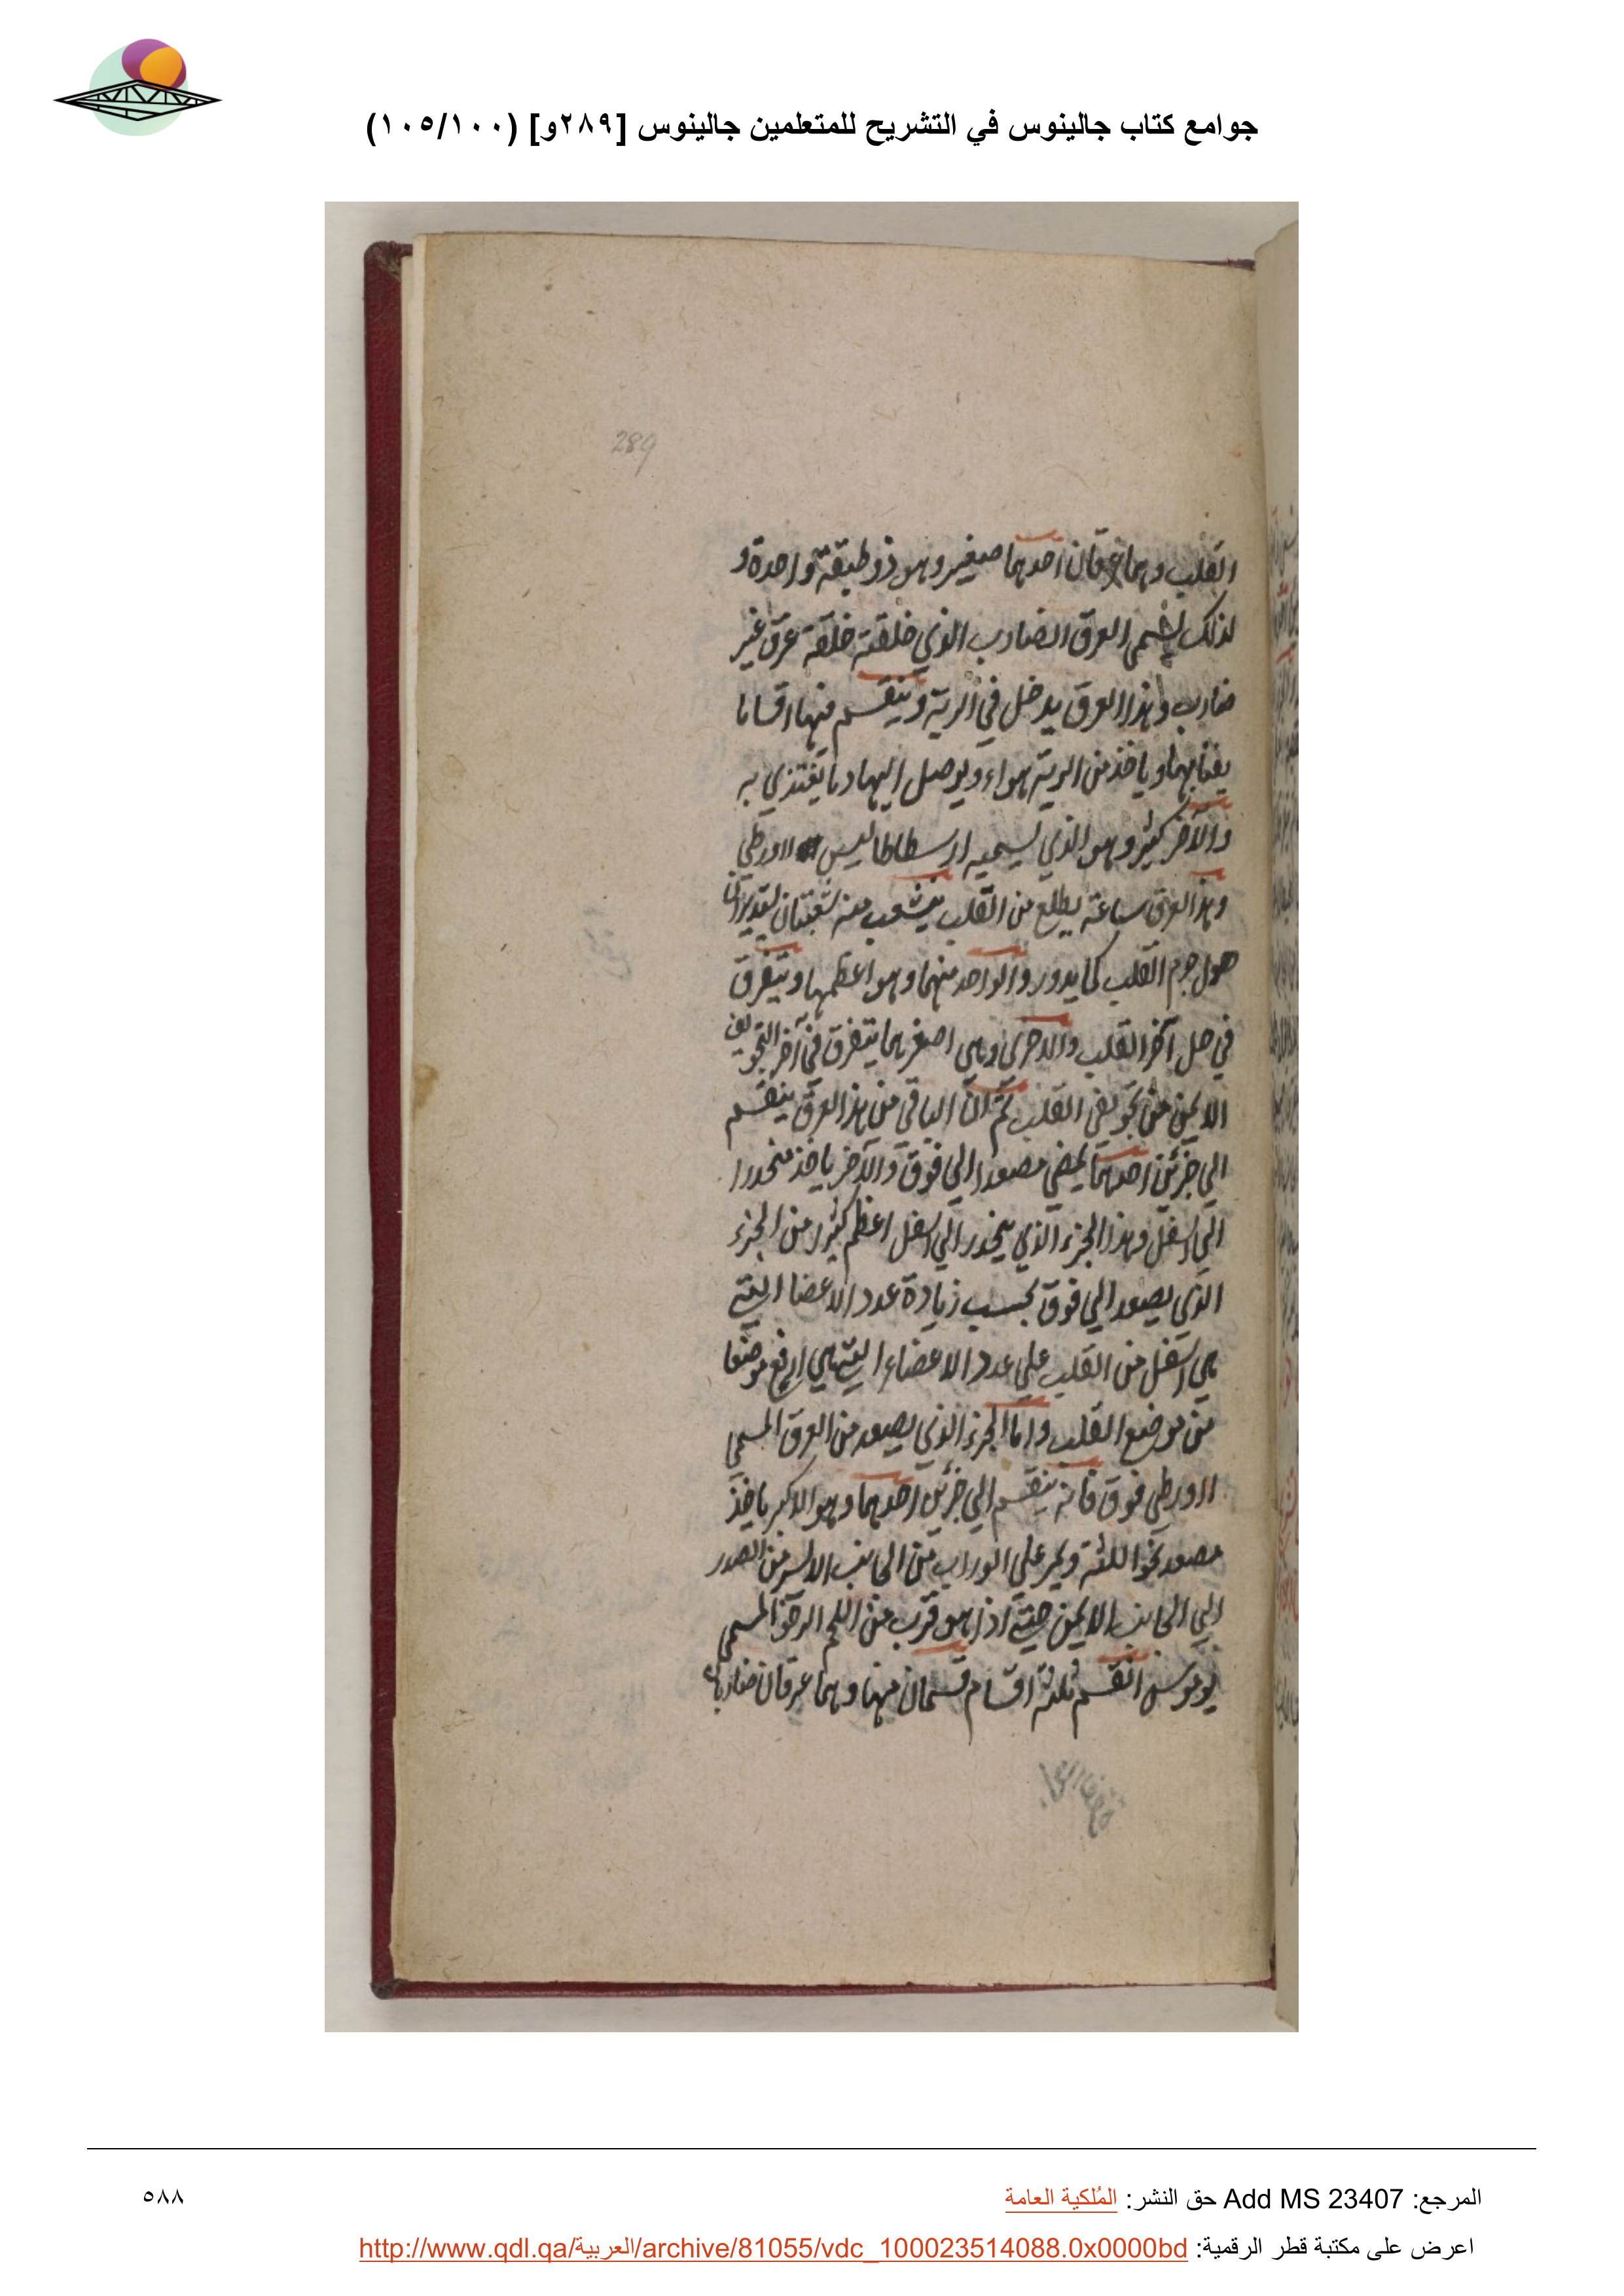 جوامع كتاب جالينوس في التشريح للمتعلمين جالينوس [٢٨٩و] (١٠٥/١٠٠)
289
القلب وهما عرقان احدهما صغير وهو ذو طبقة واحدة و
لذلك يسمى العرق الضارب الذي خلقته خلقة عرق غير
ضارب وهذا العرق يدخل في الرية وينقسم فيها اقساما
ياخذ من الرية هواء ويوصل اليها دما يغتذي به
والآخر كثير وهو الذي يسميه ارسطاطاليس اورطي
وهذا العرق ساعة يطلع من القلب ينشعب منه شعبتان
حول جرم القلب كما يدور والواحد منهما وهو اعظمها ويتفرق
في كل آخر القلب والاخرى وهي اصغرهما يتفرق في آخر التجويف
الايمن من تجويفي القلب ثم ان الباقي من هذا العرق ينقسم
الي جزئين احدهما يمضي مصعدا الي فوق والآخر ياخذ منحدرا
الي اسفل وهذا الجزء الذي ينحدر الي اسفل اعظم كثيرا من الجزء
الذي يصعد الي فوق بحسب زيادة عدد الاعضا التي
هي اسفل من القلب علي عدد الاعضاء التي هي ارفع موضعا
من موضع القلب واما الجزء الذي يصعد من العرق المسمي
اورطي فوق فانه ينقسم الي جزئين احدهما وهو الاكبر ياخذ
مصعد نحو اللثة ويمر علي الوراب من الجانب الايسر من الصدر
الي الجانب الايمن حتي اذا هو قرب من اللحم الرخو المسمي
انقسم ثلثة اقسام قسمان منها وهما عرقان ضاربان
المرجع: Add MS 23407 حق النشر: المُلكية العامة
٥٨٨
اعرض على مكتبة قطر الرقمية: http://www.qdl.qa/العربية/archive/81055/vdc_100023514088.0x0000bd